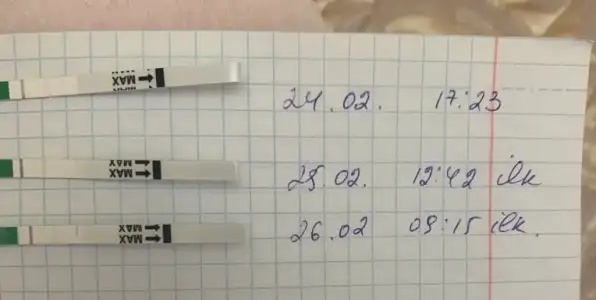 MAX
24.02. 17:23
MAX
MAX
25.02. 12:42 ilk
MAX
MAX
26.02 09:15 ilk.